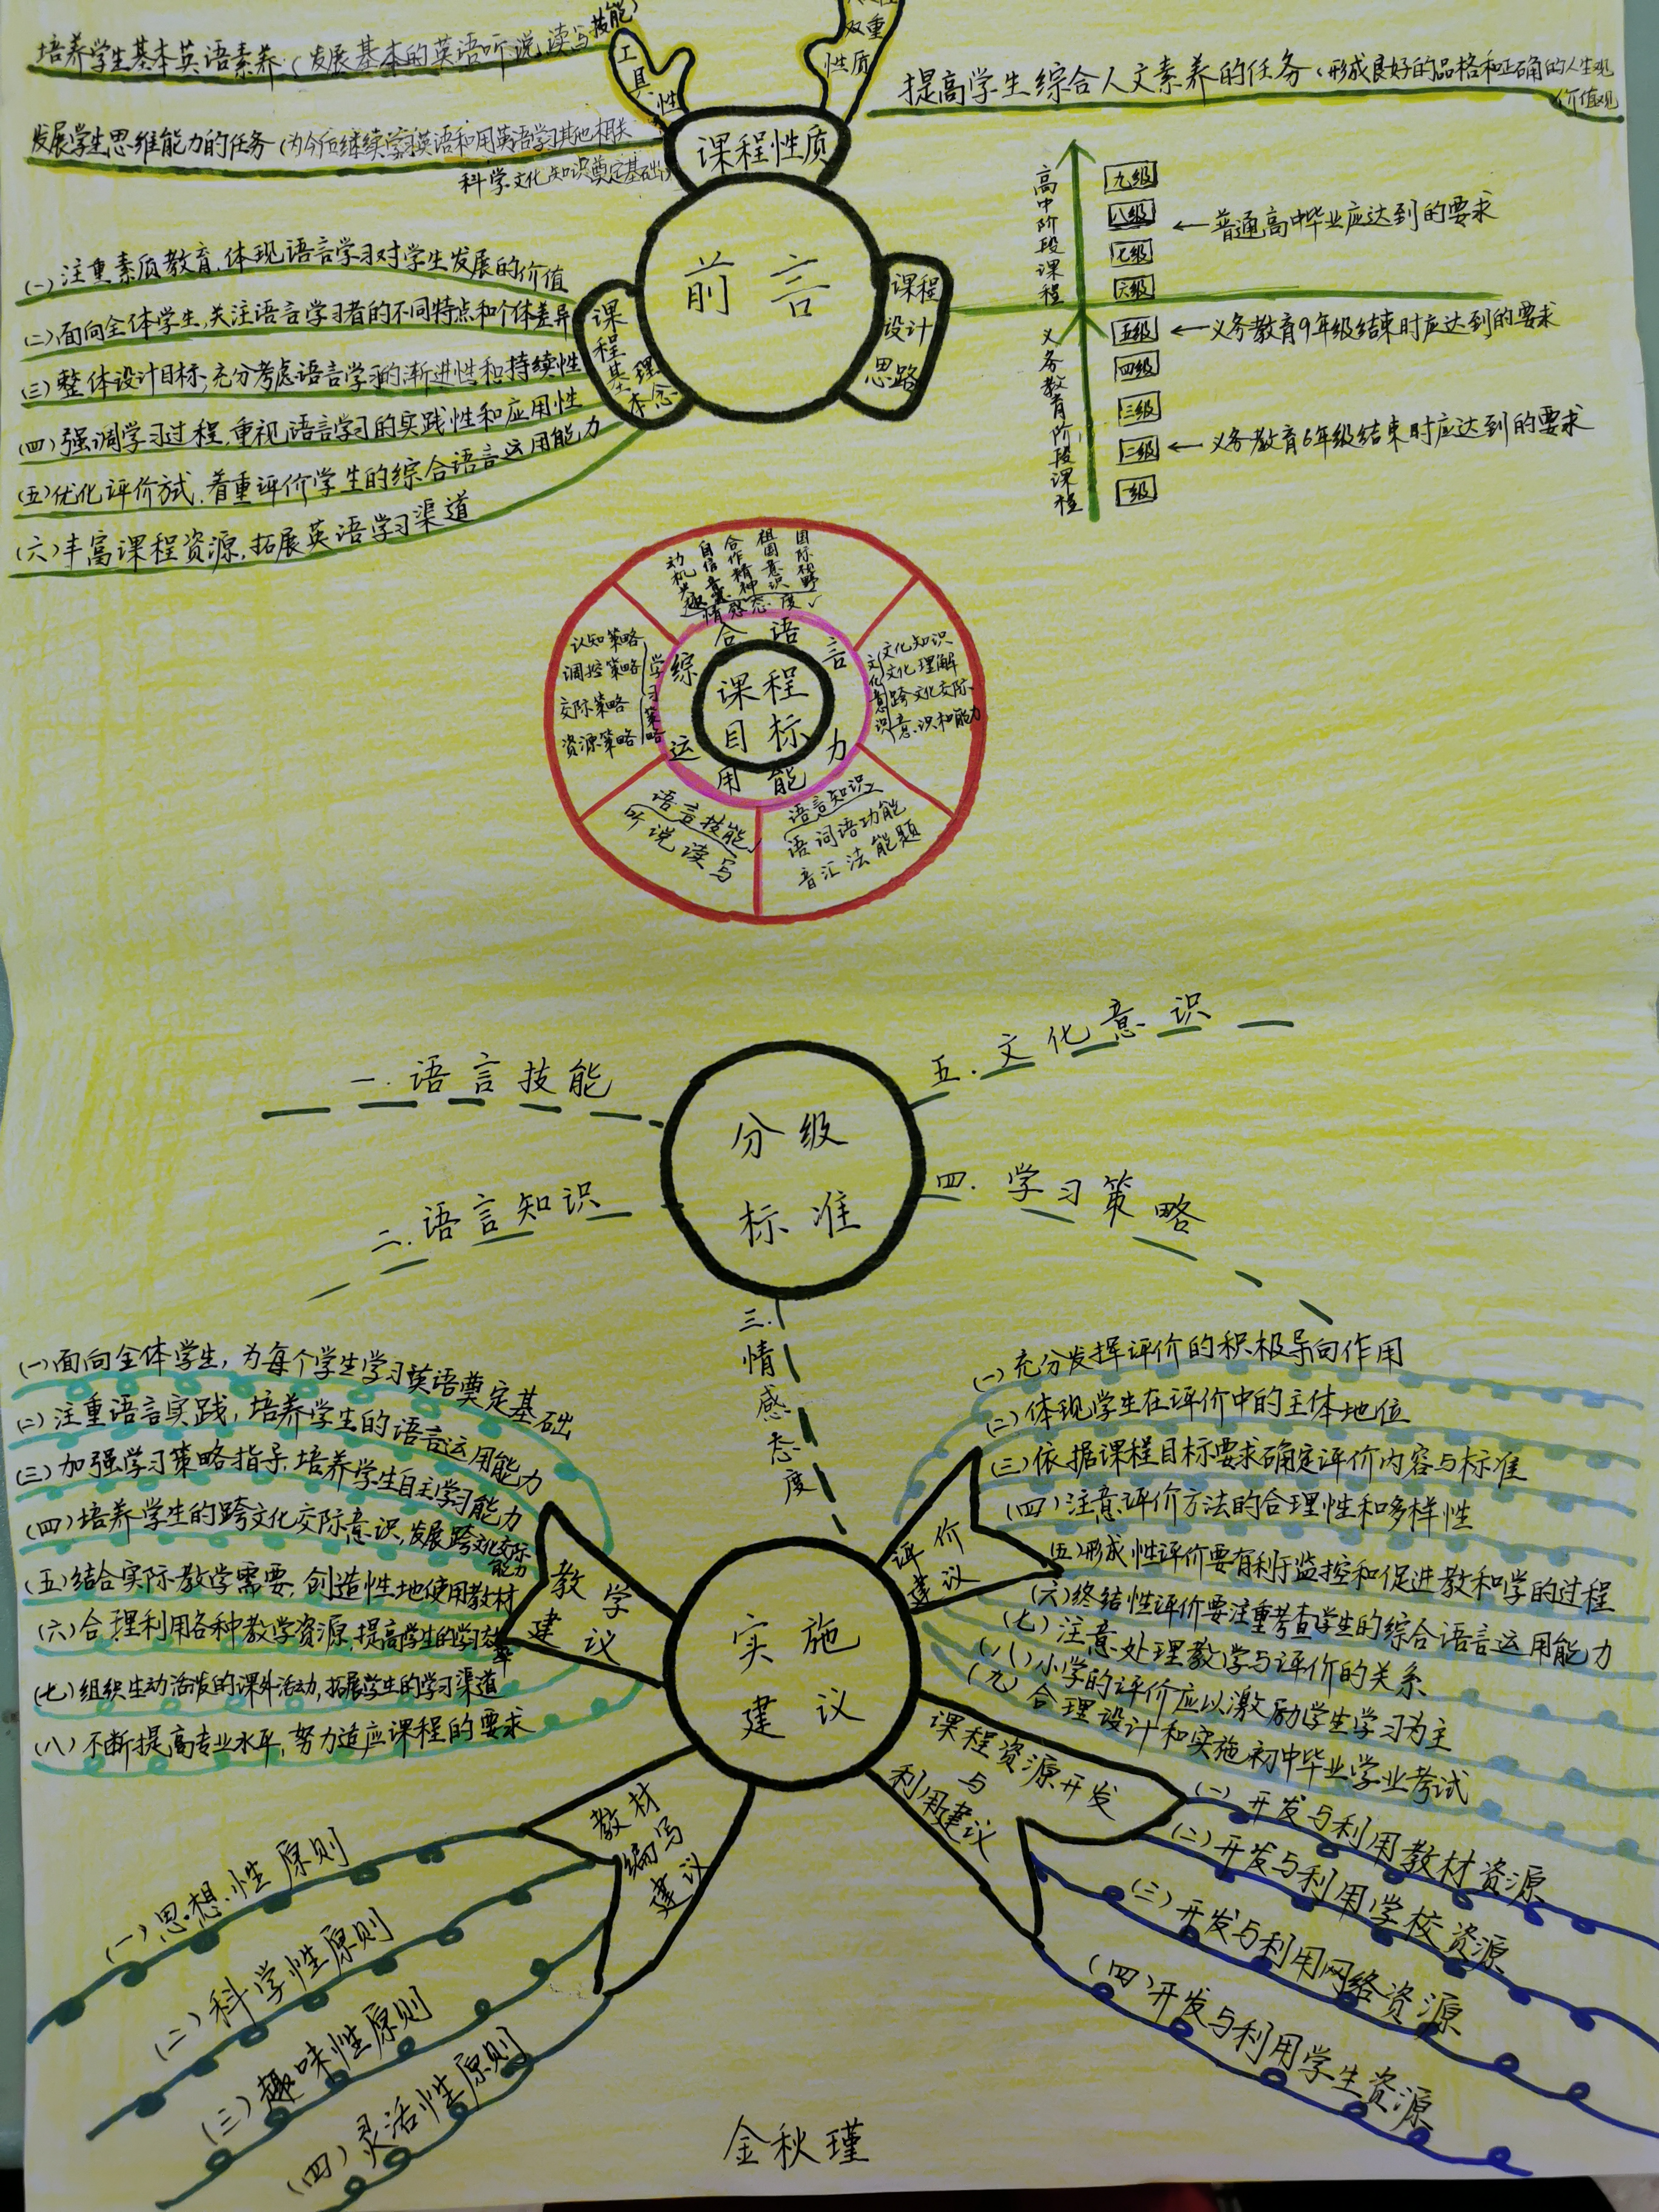 培养学生基本英语素养(发展基本的英语听说读写技能)
发展学生思维能力的任务(为今后继续学习英语和用英语学习其他相关
科学文化知识奠定基础)
工具性
双重
性质
提高学生综合人文素养的任务(形成良好的品格和正确的人生观
价值观
课程性质
前言
课程基本理念
(一)注重素质教育,体现语言学习对学生发展的价值
(二)面向全体学生,关注语言学习者的不同特点和个体差异
(三)整体设计目标,充分考虑语言学习的渐进性和持续性
(四)强调学习过程,重视语言学习的实践性和应用性
(五)优化评价方式,着重评价学生的综合语言运用能力
(六)丰富课程资源,拓展英语学习渠道
课程
设计
思路
高中阶段课程
义务教育阶段课程
九级
八级
←普通高中毕业应达到的要求
七级
六级
五级
←义务教育9年级结束时应达到的要求
四级
三级
二级
←义务教育6年级结束时应达到的要求
一级
课程
目标
综合语言
运用能力
动机兴趣
自信意志
合作精神
祖国意识
国际视野
情感态度
文化意识
文化知识
文化理解
跨文化交际
意识和能力
语言知识
语词语功能
音汇法能题
语言技能
听说读写
学习策略
认知策略
调控策略
交际策略
资源策略
分级
标准
一.语言技能
二.语言知识
三.情感态度
四.学习策略
五.文化意识
实施
建议
教学
建议
(一)面向全体学生,为每个学生学习英语奠定基础
(二)注重语言实践,培养学生的语言运用能力
(三)加强学习策略指导,培养学生自主学习能力
(四)培养学生的跨文化交际意识,发展跨文化交际
能力
(五)结合实际教学需要,创造性地使用教材
(六)合理利用各种教学资源,提高学生的学习效
率
(七)组织生动活泼的课外活动,拓展学生的学习渠道
(八)不断提高专业水平,努力适应课程的要求
评价
建议
(一)充分发挥评价的积极导向作用
(二)体现学生在评价中的主体地位
(三)依据课程目标要求确定评价内容与标准
(四)注意评价方法的合理性和多样性
(五)形成性评价要有利于监控和促进教和学的过程
(六)终结性评价要注重考查学生的综合语言运用能力
(七)注意处理教学与评价的关系
(八)小学的评价应以激励学生学习为主
(九)合理设计和实施初中毕业学业考试
教材
编写
建议
(一)思想性原则
(二)科学性原则
(三)趣味性原则
(四)灵活性原则
课程资源开发
与
利用建议
(一)开发与利用教材资源
(二)开发与利用学校资源
(三)开发与利用网络资源
(四)开发与利用学生资源
金秋瑾